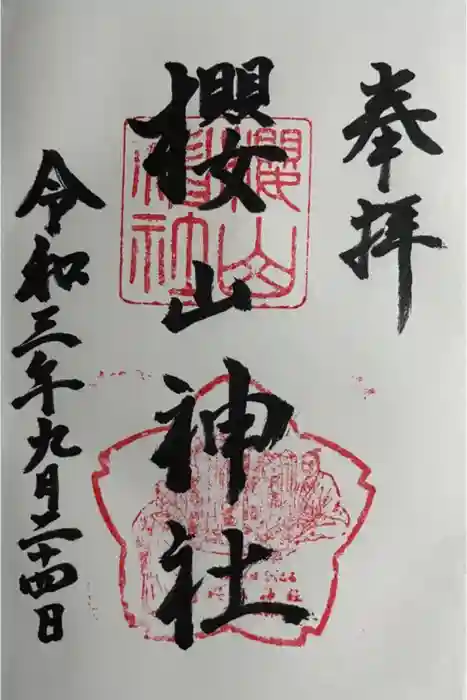 奉拝
櫻山神社
令和三年九月二十四日
櫻山
神社